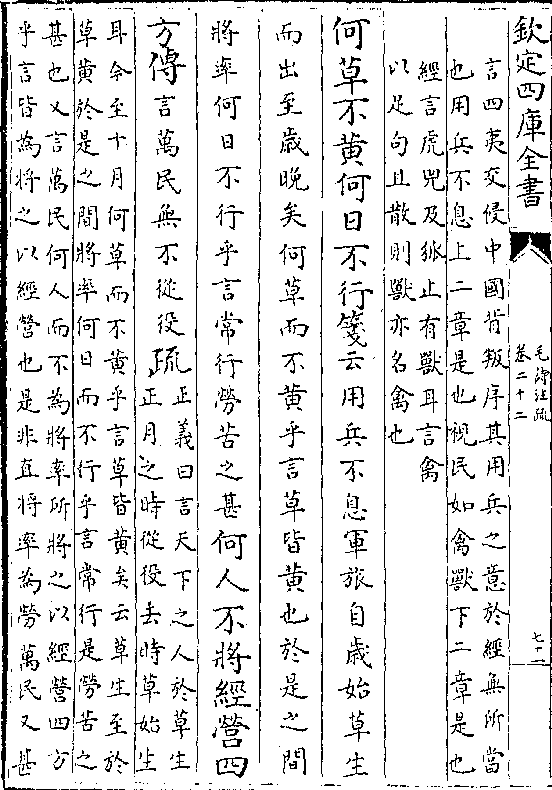 欽定四庫全書
毛詩注疏
卷二十二
七十二
言四夷交侵中國背叛序其用兵之意於經無所當
也用兵不息上二章是也視民如禽獸下二章是也
經言虎兕及狐止有獸耳言禽
以足句且散則獸亦名禽也
何草不黄何日不行箋云用兵不息軍旅自歲始草生
而出至歲晚矣何草而不黄乎言草皆黄也於是之間
將率何日不行乎言常行勞苦之甚何人不將經營四
方傳言萬民無不從役疏正義曰言天下之人於草生
正月之時從役去時草始生
耳今至十月何草而不黄乎言草皆黄矣云草生至於
草黄於是之間將率何日而不行乎言常行是勞苦之
甚也又言萬民何人而不為將率所將之以經營四方
乎言皆為將之以經營也是非直將率為勞萬民又甚